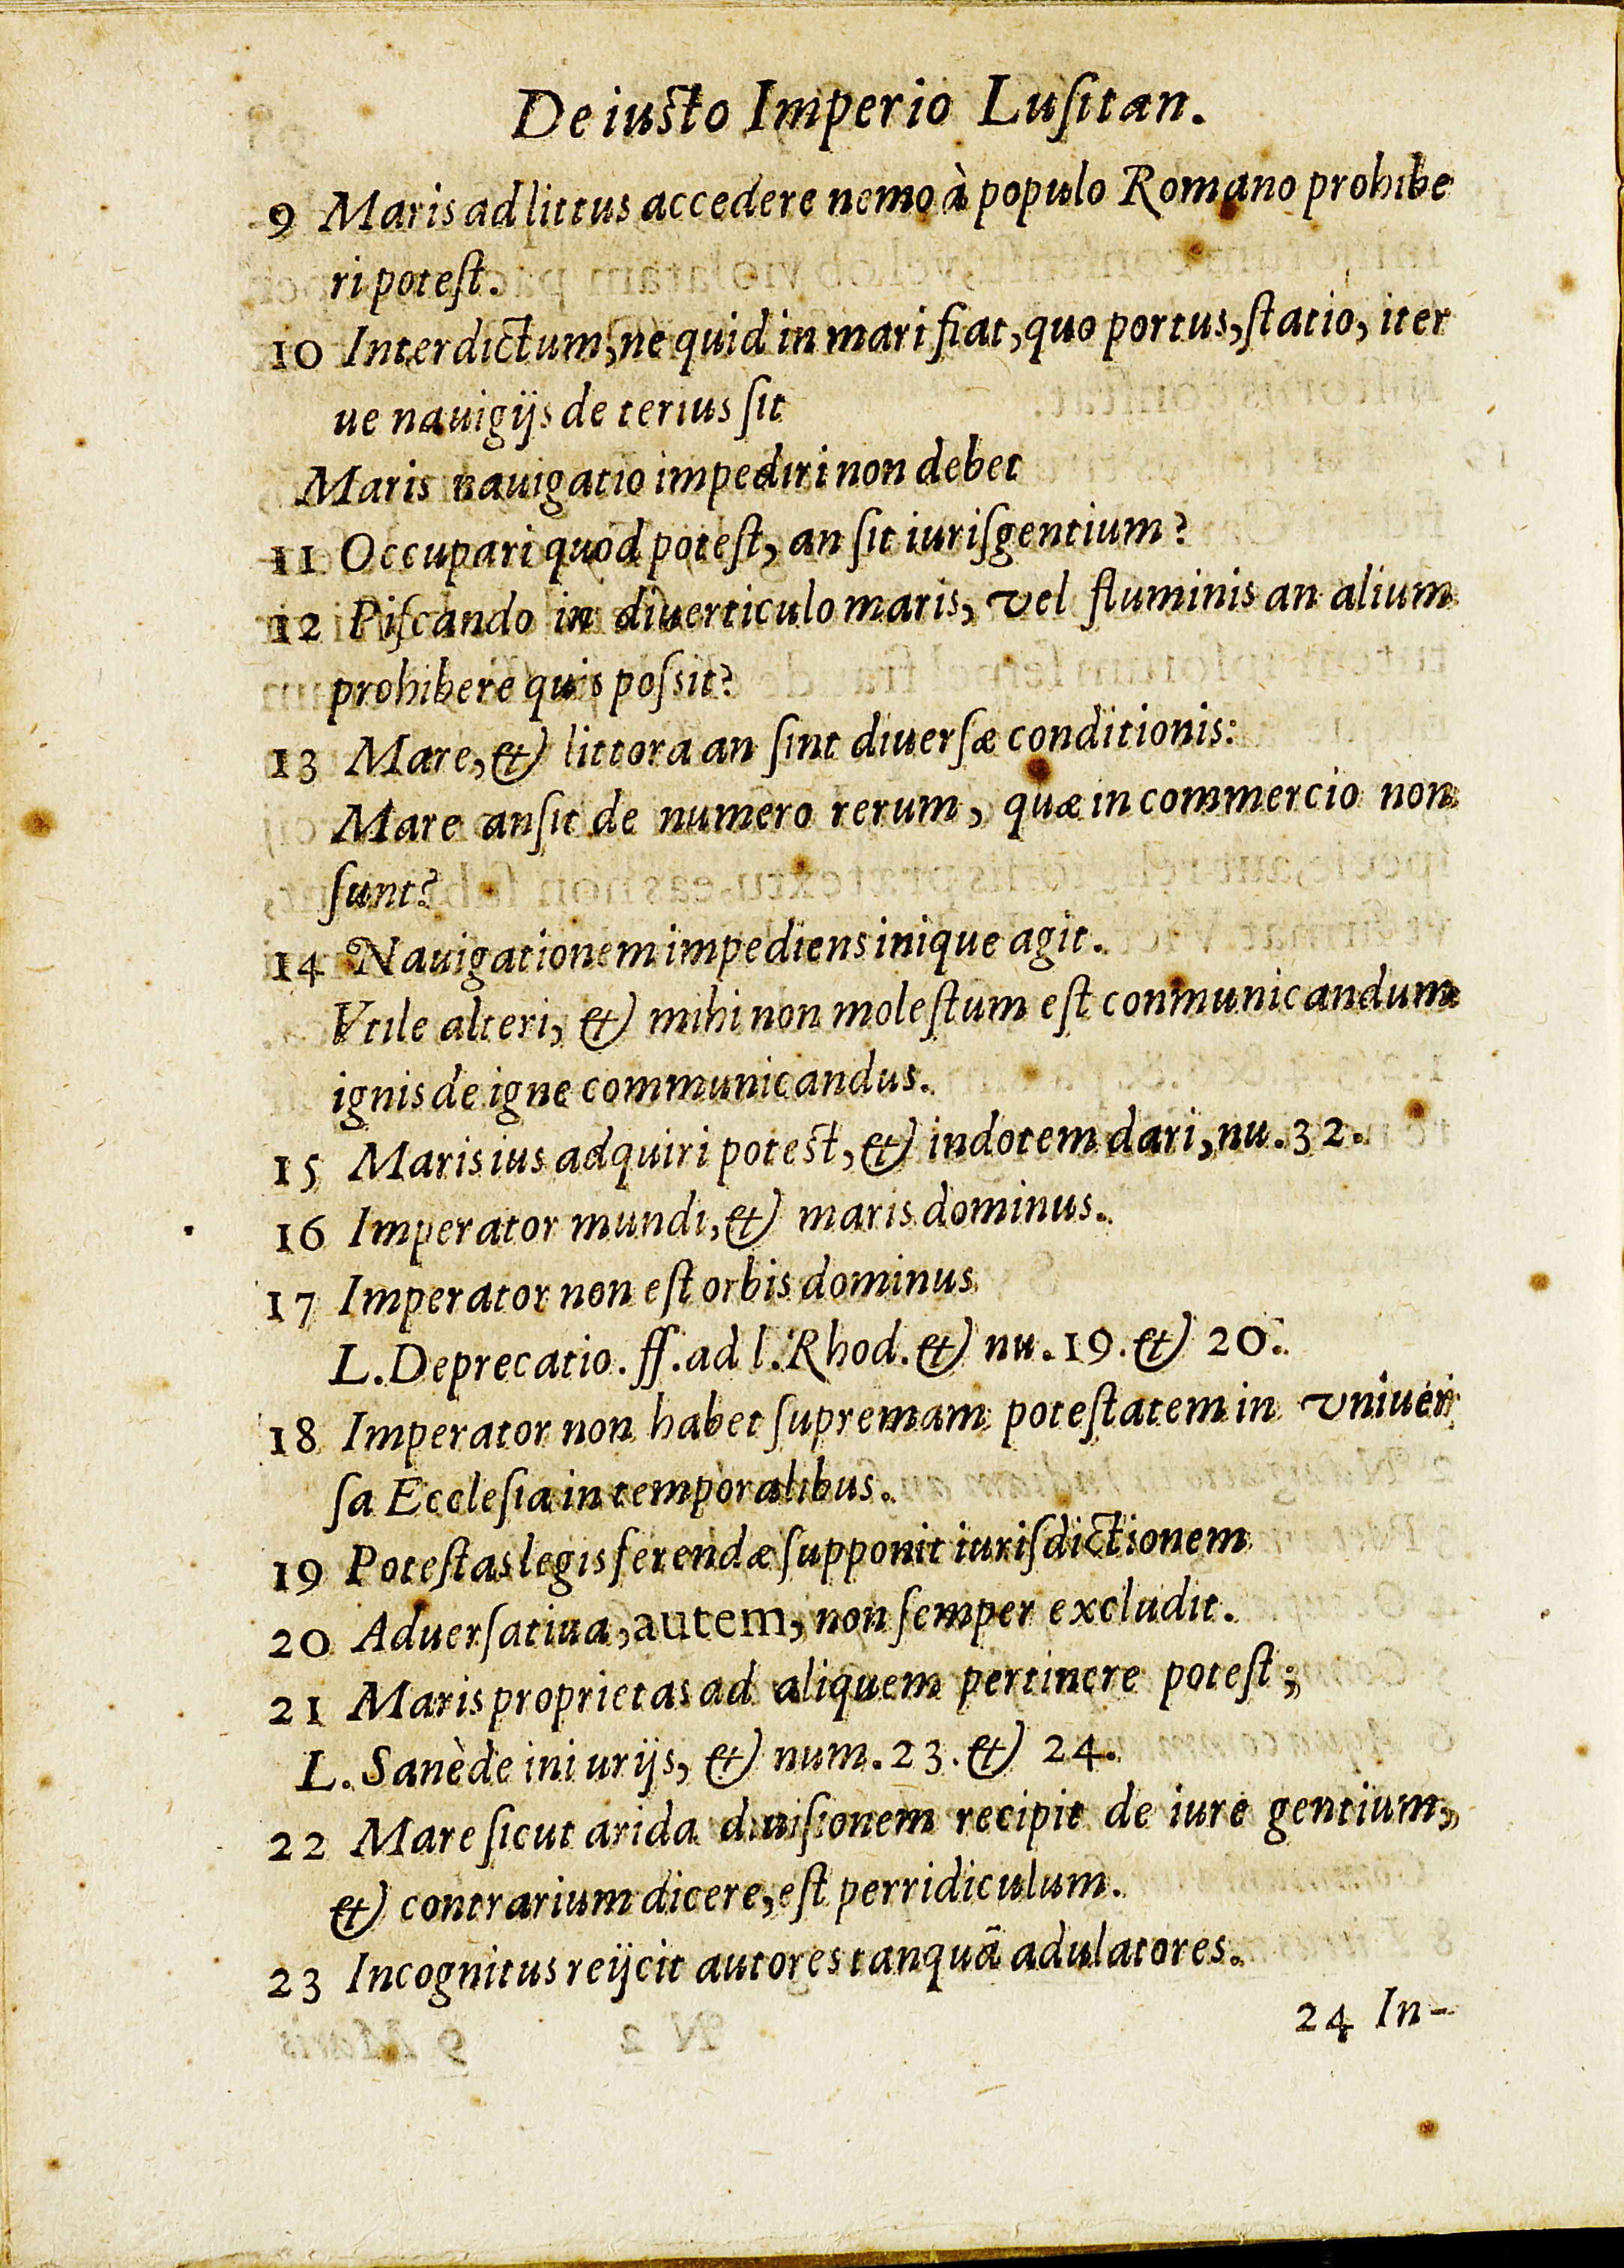 De iusto Imperio Lusitan.
9 Maris ad littus accedere nemo à populo Romano prohibe
ri potest.
10 Interdictum, ne quid in mari fiat, quo portus, statio, iter
ue nauigijs de terius sit
Maris nauigatio impediri non debet
11 Occupari quod potest, an sit iurisgentium?
12 Piscando in diuerticulo maris, vel fluminis an alium
prohibere quis possit?
13 Mare, & littora an sint diuersæ conditionis:
Mare an sit de numero rerum, quæ in commercio non
sunt?
14 Nauigationem impediens inique agit.
Vtile alteri, & mihi non molestum est conmunicandum
ignis de igne communicandus.
15 Maris ius adquiri potest, & in dotem dari, nu. 32.
16 Imperator mundi, & maris dominus.
17 Imperator non est orbis dominus
L. Deprecatio. ff. ad l. Rhod. & nu. 19. & 20.
18 Imperator non habet supremam potestatem in vniuer
sa Ecclesia in temporalibus.
19 Potestas legis ferendæ supponit iurisdictionem
20 Aduersatiua, autem, non semper excludit.
21 Maris proprietas ad aliquem pertinere potest;
L. Sanè de iniurijs, & num. 23. & 24.
22 Mare sicut arida diuisionem recipit de iure gentium,
& contrarium dicere, est perridiculum.
23 Incognitus reijcit autores tanquā adulatores.
24 In-